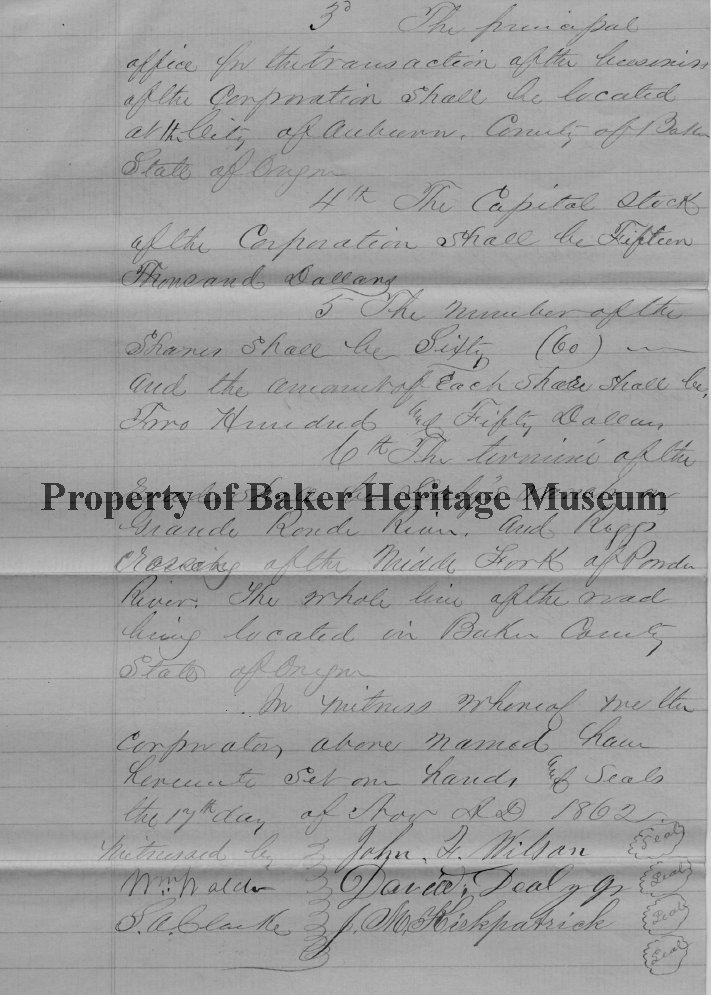 3d The principal
office for the transaction of the business
of the Corporation shall be located
at the City of Auburn, County of Baker
State of Oregon
4th The Capital Stock
of the Corporation shall be Fifteen
Thousand Dollars
5 The number of the
Shares shall be Sixty (60)
and the amount of Each Share shall be,
Two Hundred and Fifty Dollars
6th The termini of the
Property of Baker Heritage Museum
Grande Ronde River. and Riggs
crossing of the Middle Fork of Powder
River. The whole line of the road
being located in Baker County
State of Oregon
In witness whereof we the
Corporators, above named have
hereunto set our hands and Seals
the 17th day of Nov AD 1862
Witnessed by John. F. Wilson Seal
Wm Waldo David Dealy Seal
S. A. Clarke J. M Kirkpatrick Seal
Seal